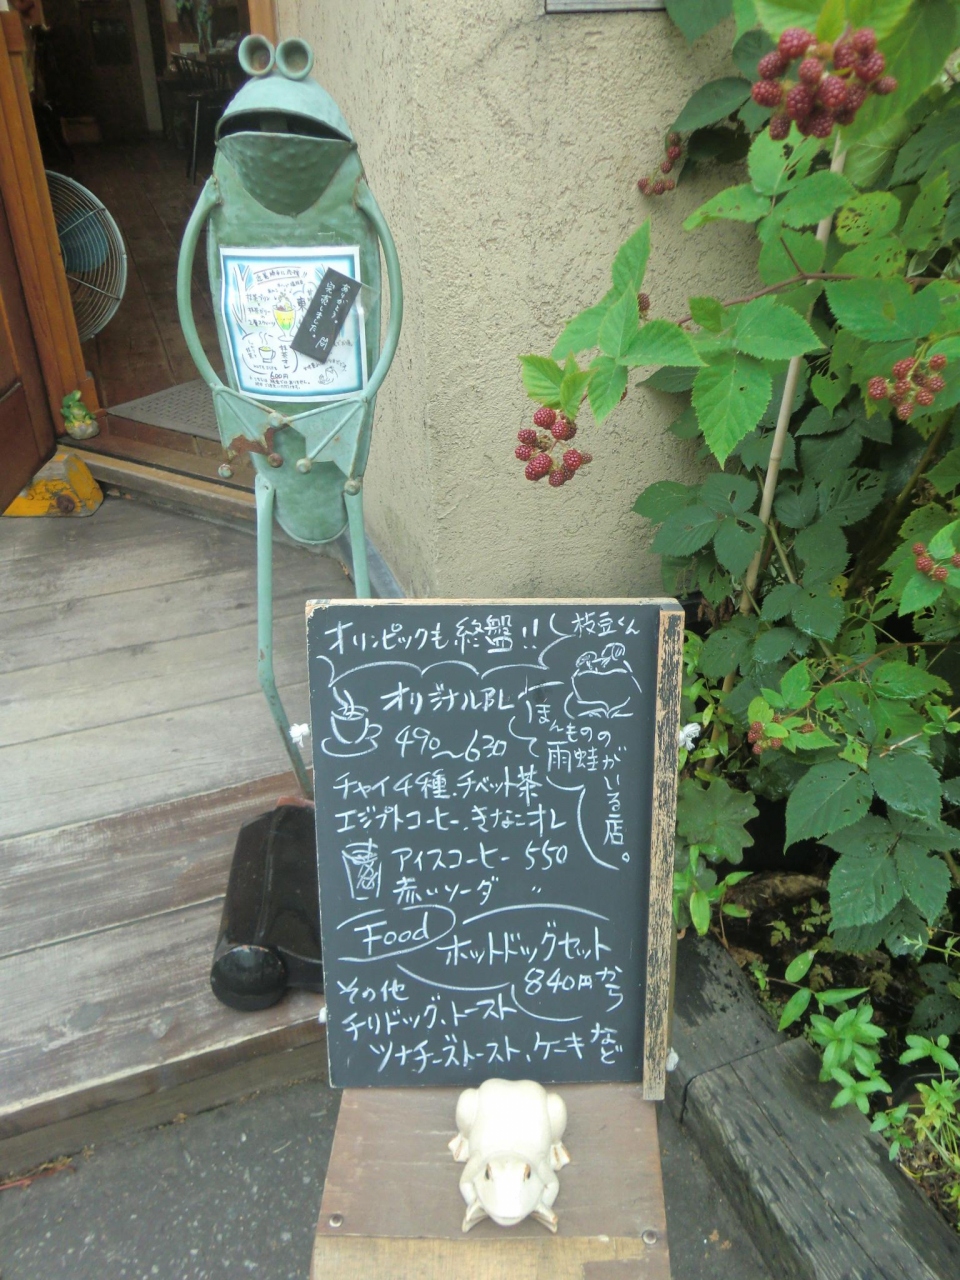 売り切れ
完売しました。
600円
オリンピックも終盤!!
枝豆くん
オリジナルBL
490〜630
ほんものの
雨蛙がいる店。
チャイ4種、チベット茶
エジプトコーヒー、きなこオレ
アイスコーヒー 550
赤いソーダ 〃
Food
ホットドッグセット
840円から
その他
チリドッグ、トースト
ツナチーズトースト、ケーキなど